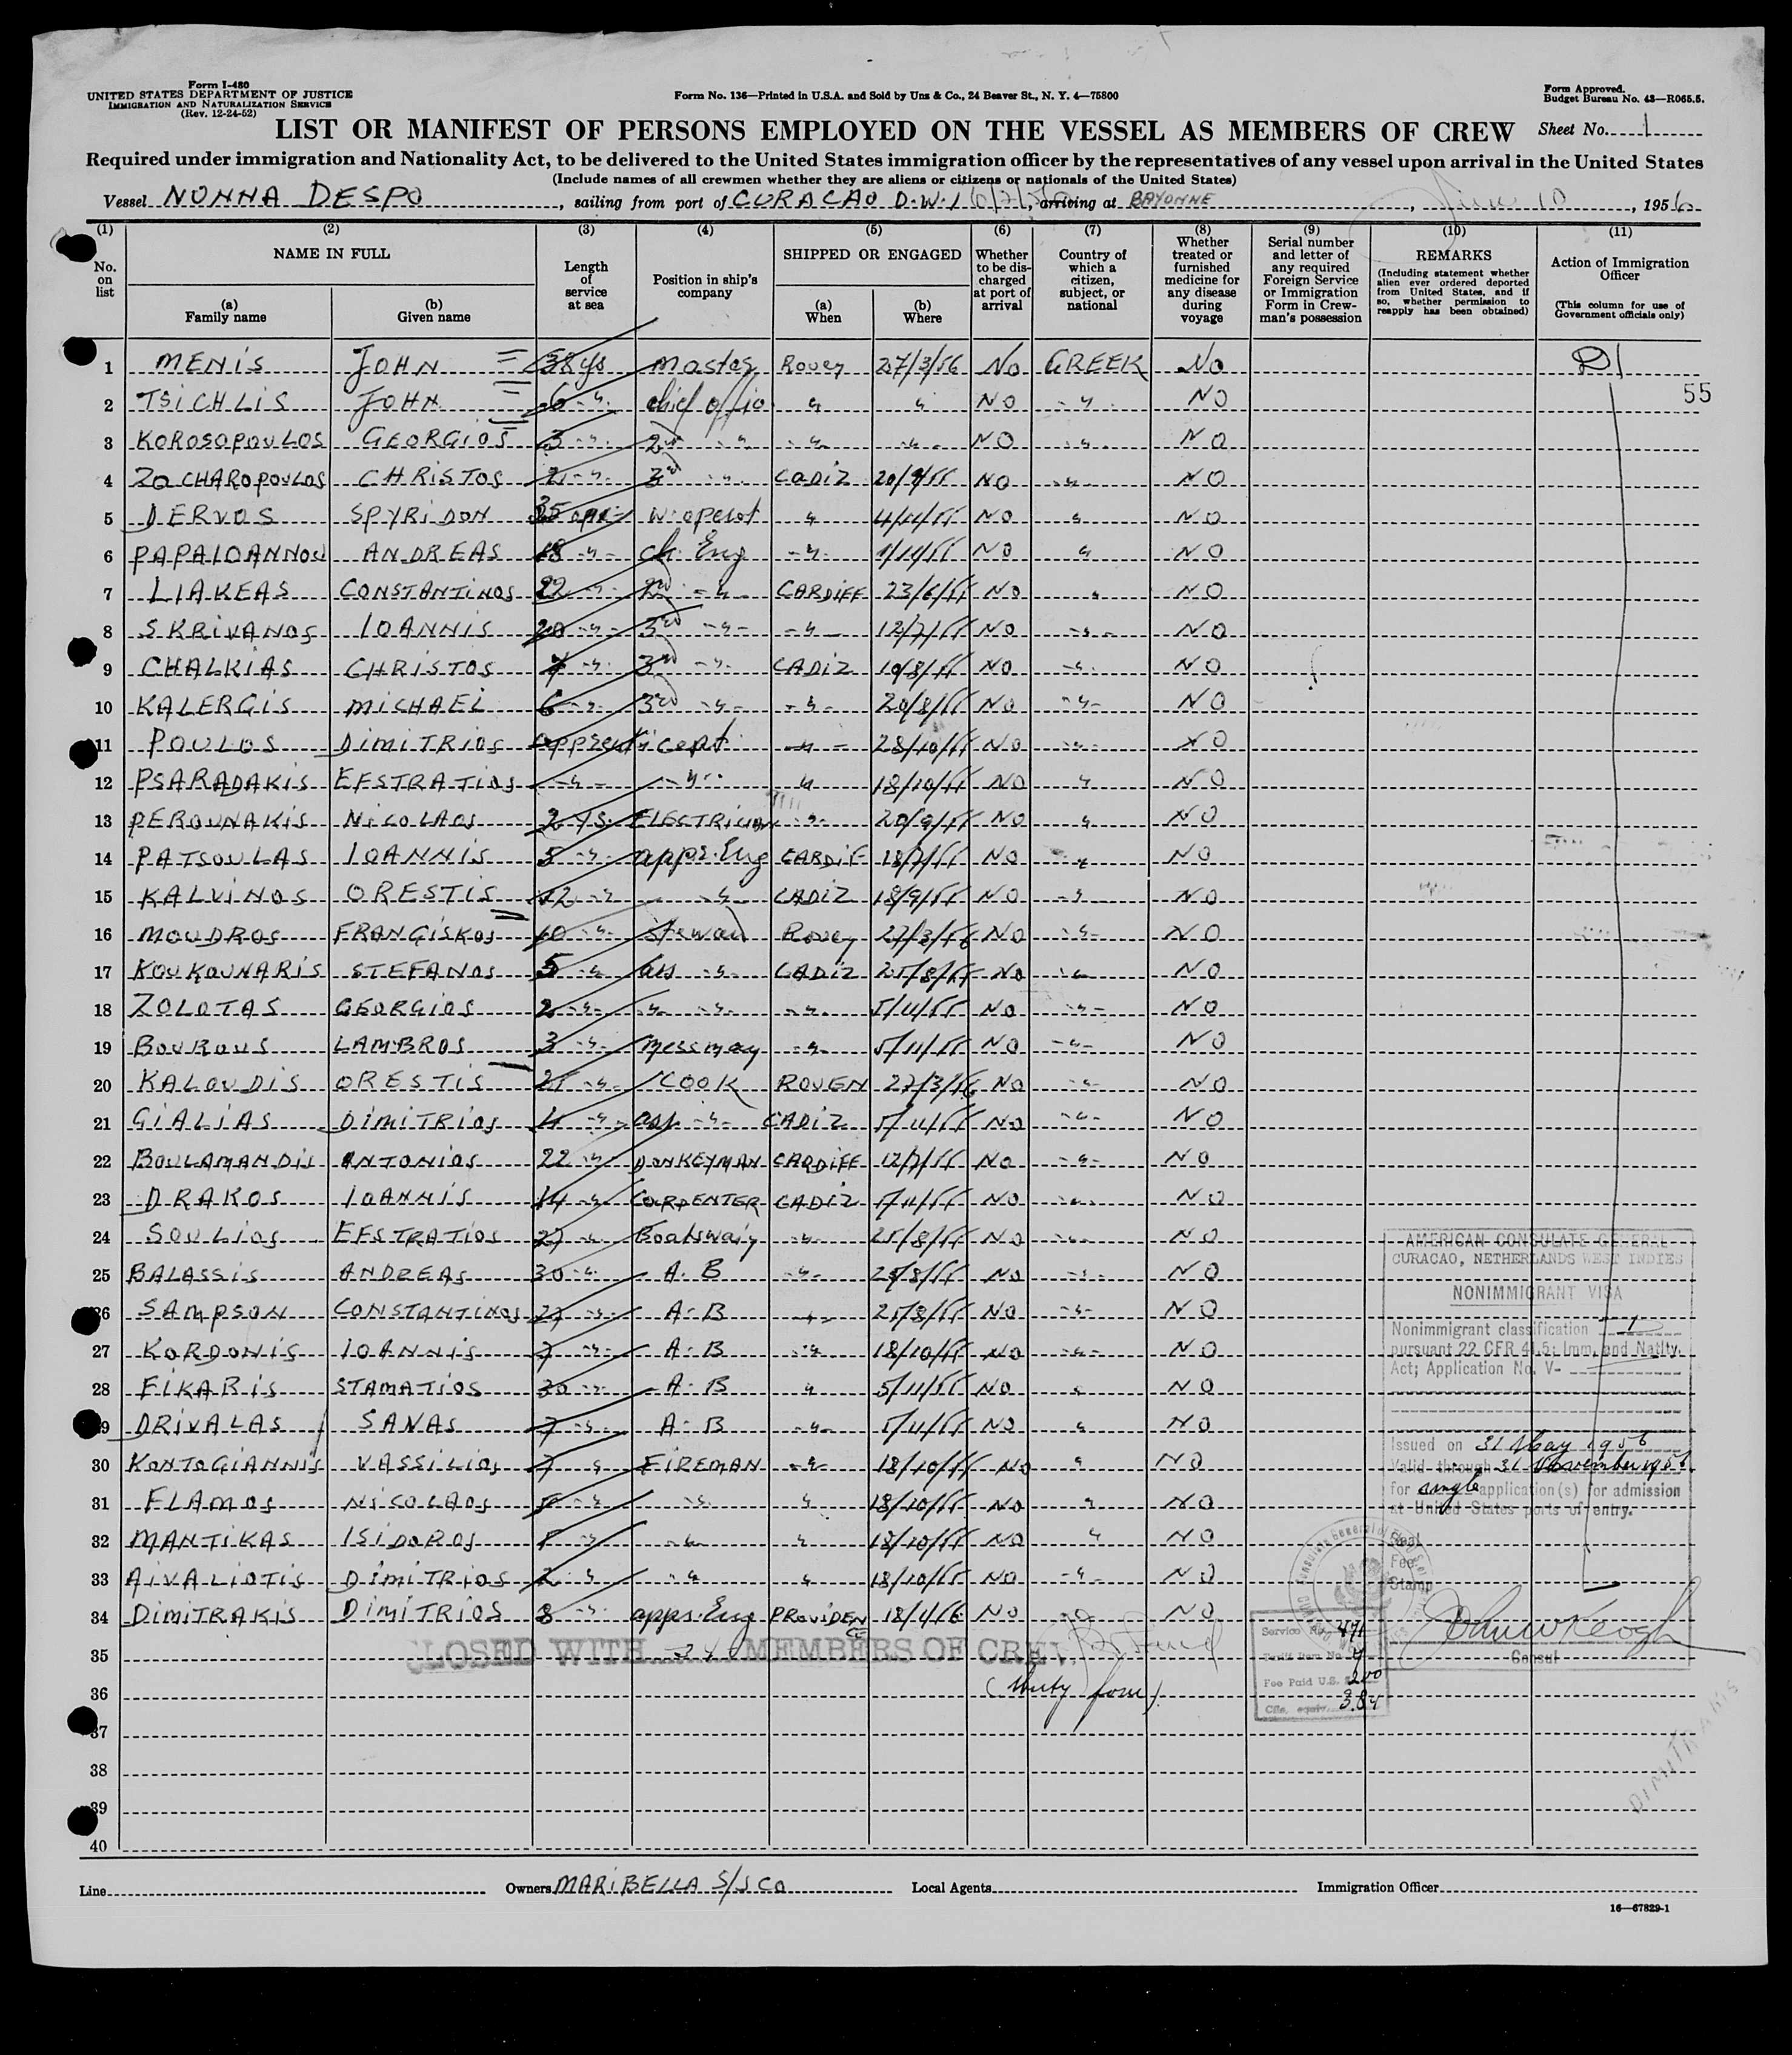 Form I-480
UNITED STATES DEPARTMENT OF JUSTICE
IMMIGRATION AND NATURALIZATION SERVICE
(Rev. 12-24-52)
Form No. 136—Printed in U.S.A. and Sold by Unz & Co., 24 Beaver St., N. Y. 4—75800
Form Approved.
Budget Bureau No. 43—R065.5.
LIST OR MANIFEST OF PERSONS EMPLOYED ON THE VESSEL AS MEMBERS OF CREW Sheet No. 1
Required under immigration and Nationality Act, to be delivered to the United States immigration officer by the representatives of any vessel upon arrival in the United States
(Include names of all crewmen whether they are aliens or citizens or nationals of the United States)
Vessel NONNA DESPO, sailing from port of CURACAO D.W.I, arriving at BAYONNE, June 10, 1956
(1) (2) (3) (4) (5) (6) (7) (8) (9) (10) (11)
No. on list
NAME IN FULL
(a) Family name
(b) Given name
Length of service at sea
Position in ship's company
SHIPPED OR ENGAGED
(a) When
(b) Where
Whether to be discharged at port of arrival
Country of which a citizen, subject, or national
Whether treated or furnished medicine for any disease during voyage
Serial number and letter of any required Foreign Service or Immigration Form in Crewman's possession
REMARKS
(Including statement whether alien ever ordered deported from United States, and if so, whether permission to reapply has been obtained)
Action of Immigration Officer
(This column for use of Government officials only)
1 MENIS JOHN 38 ys Master Rouen 27/3/56 No GREEK No D1
2 TSICHLIS JOHN 6 -"- chief offic " " NO -"- NO 55
3 KOROSOPOULOS GEORGIOS 3 -"- 2nd -"- -"- -"- NO -"- NO
4 ZACHAROPOULOS CHRISTOS 2 -"- 3rd -"- CADIZ 20/9/55 NO -"- NO
5 DERVOS SPYRIDON W. operat " 4/11/55 NO " NO
6 PAPAIOANNOU ANDREAS 18 -"- ch. Eng -"- 1/11/55 NO " NO
7 LIAKEAS CONSTANTINOS 22 -"- 2nd -"- CARDIFF 23/6/55 NO " NO
8 SKRIVANOS IOANNIS 20 -"- 3rd -"- -"- 12/7/55 NO -"- NO
9 CHALKIAS CHRISTOS 7 -"- 3rd -"- CADIZ 10/8/55 NO -"- NO
10 KALERGIS MICHAEL 6 -"- 3rd -"- -"- 20/8/55 NO -"- NO
11 POULOS DIMITRIOS -"- 28/10/55 NO -"- NO
12 PSARADAKIS EFSTRATIOS -"- -"- " 18/10/55 NO " NO
13 PEROUNAKIS NICOLAOS 2 ys. ELECTRICIAN -"- 20/9/55 NO " NO
14 PATSOULAS IOANNIS 5 -"- appr. Eng CARDIF 18/7/55 NO -"- NO
15 KALVINOS ORESTIS 12 -"- -"- CADIZ 18/9/55 NO -"- NO
16 MOUDROS FRANGISKOS 10 -"- Steward Rouen 27/3/56 NO -"- NO
17 KOUKOUNARIS STEFANOS 5 -"- ass -"- CADIZ 25/8/55 NO -"- NO
18 ZOLOTAS GEORGIOS 2 -"- -"- -"- -"- 5/11/55 NO -"- NO
19 BOUROUS LAMBROS 3 -"- Messman -"- 5/11/55 NO -"- NO
20 KALOUDIS ORESTIS -"- COOK ROUEN 27/3/56 NO -"- NO
21 GIALIAS DIMITRIOS 4 -"- ass -"- CADIZ 5/11/55 NO -"- NO
22 BOULAMANDIS ANTONIOS 22 -"- DONKEYMAN CARDIFF 12/7/55 NO -"- NO
23 DRAKOS IOANNIS 14 -"- CARPENTER CADIZ 5/11/55 NO -"- NO
24 SOULIOS EFSTRATIOS 27 -"- Boatswain -"- 25/8/55 NO -"- NO
25 BALASSIS ANDREAS 30 -"- A.B -"- 25/8/55 NO -"- NO
26 SAMPSON CONSTANTINOS 27 -"- A.B -"- 25/8/55 NO -"- NO
27 KORDONIS IOANNIS 7 -"- A.B -"- 18/10/55 NO -"- NO
28 FIKARIS STAMATIOS 30 -"- A.B " 5/11/55 NO " NO
29 DRIVALAS SAVAS 7 -"- A.B -"- 5/11/55 NO " NO
30 KONTOGIANNIS VASSILIOS 7 " FIREMAN -"- 18/10/55 NO " NO
31 FLAMOS NICOLAOS 5 -"- -"- " 18/10/55 NO " NO
32 MANTIKAS ISIDOROS 5 -"- -"- " 18/10/55 NO " NO
33 AIVALIOTIS DIMITRIOS 2 " -"- " 18/10/55 NO -"- NO
34 DIMITRAKIS DIMITRIOS 8 -"- appr. Eng PROVIDENCE 18/4/56 NO -"- NO
35 CLOSED WITH 34 MEMBERS OF CREW
36 (thirty four)
37
38
39
40
AMERICAN CONSULATE GENERAL
CURACAO, NETHERLANDS WEST INDIES
NONIMMIGRANT VISA
Nonimmigrant classification
pursuant 22 CFR 41.5; Imm. and Natlty.
Act; Application No. V-
Issued on 31 May 1956
Valid through 31 November 1956
for single application(s) for admission
at United States ports of entry.
Seal
Fee
Stamp
John W Keogh
Consul
Service No. 471
Tariff Item No. 7
Fee Paid U.S. $ 2.00
Cfls. equiv. 3.84
DIMITRAKIS
Line Owners MARIBELLA S/S CO Local Agents Immigration Officer
16—67829-1